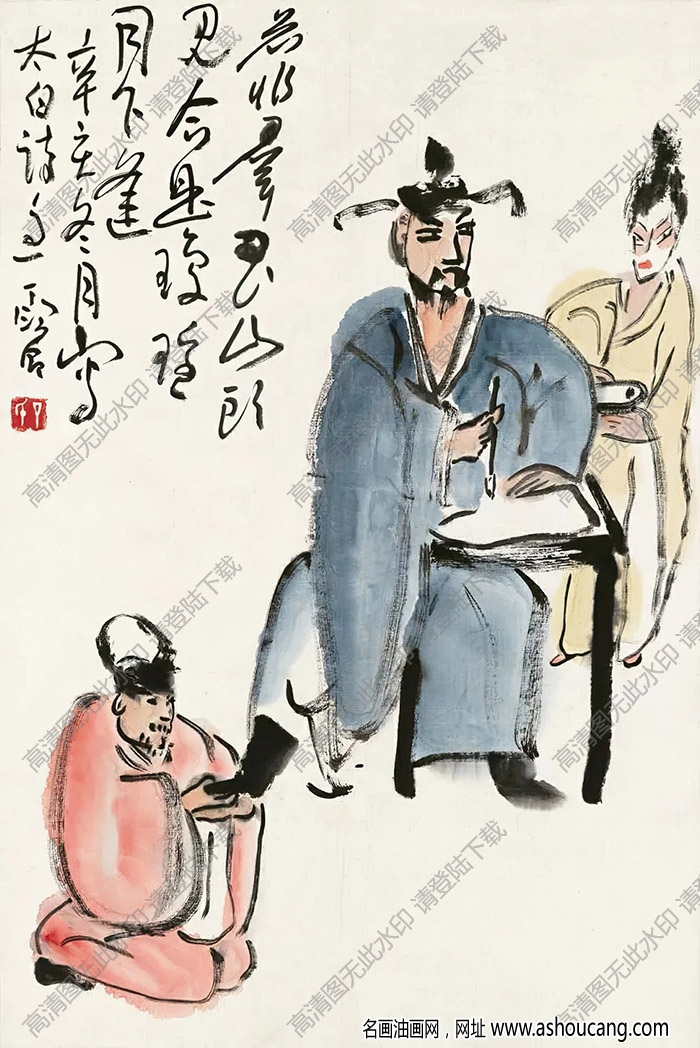 若非羣玉山頭
見会是瑤
月下逢
辛冬月寫
太白詩意
高清图无此水印 请登陆下载
名画油画网，网址 www.ashoucang.com